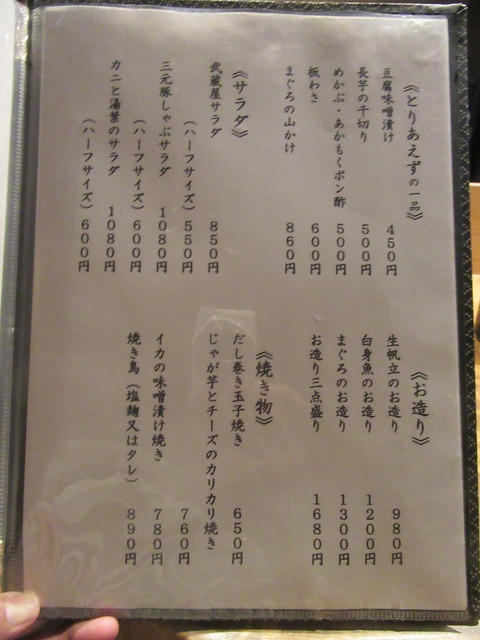 《とりあえずの一品》
豆腐味噌漬け 450円
長芋の千切り 500円
めかぶ・あかもくポン酢 500円
板わさ 600円
まぐろの山かけ 860円
《サラダ》
武蔵屋サラダ 850円
(ハーフサイズ) 550円
三元豚しゃぶサラダ 1080円
(ハーフサイズ) 600円
カニと湯葉のサラダ 1080円
(ハーフサイズ) 600円
《お造り》
生帆立のお造り 980円
白身魚のお造り 1200円
まぐろのお造り 1300円
お造り三点盛り 1680円
《焼き物》
だし巻き玉子焼き 650円
じゃが芋とチーズのカリカリ焼き
760円
イカの味噌漬け焼き 780円
焼き鳥(塩麹又はタレ) 890円